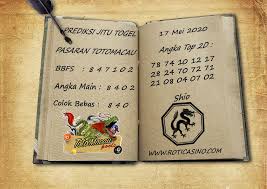 PREDIKSI JITU TOGEL
PASARAN TOTOMACAU
BBFS : 8 4 7 1 0 2
Angka Main : 8 4 0 2
Colok Bebas : 8 4 0
TOTOMACAU
POOLS
17 Mei 2020
Angka Top 2D :
78 74 10 12 17
28 24 70 72 71
21 08 04 07 02
Shio
WWW.ROTICASINO.COM